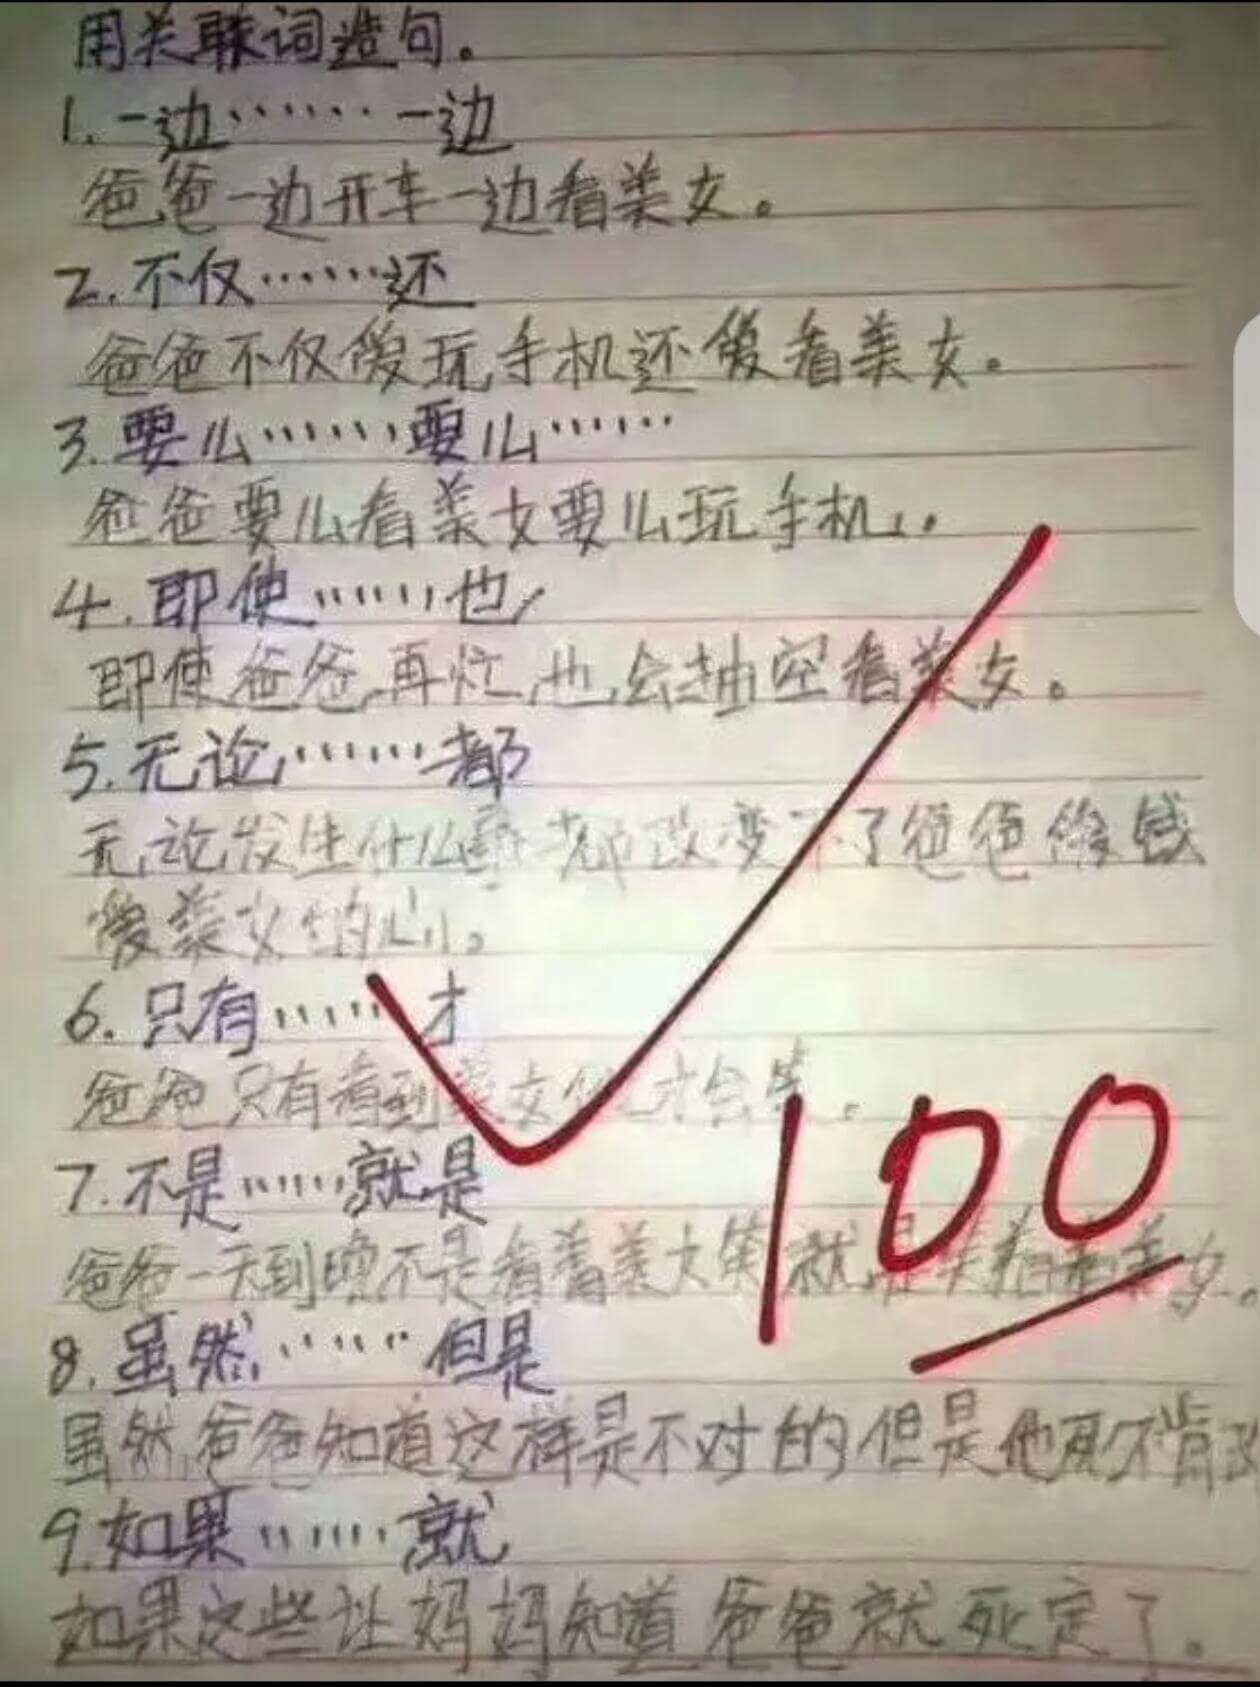 用关联词造句。
1. 一边……一边
爸爸一边开车一边看美女。
2. 不仅……还
爸爸不仅爱玩手机还爱看美女。
3. 要么……要么……
爸爸要么看美女要么玩手机。
4. 即使……也
即使爸爸再忙,也会抽空看美女。
5. 无论……都
无论发生什么事都改变不了爸爸偷钱
爱美女的心。
6. 只有……才
爸爸只有看到美女他才会笑。
7. 不是……就是
爸爸一天到晚不是看着美女笑就是笑着看美女。
8. 虽然……但是
虽然爸爸知道这样是不对的但是他死不肯改
9. 如果……就
如果这些让妈妈知道爸爸就死定了。
100